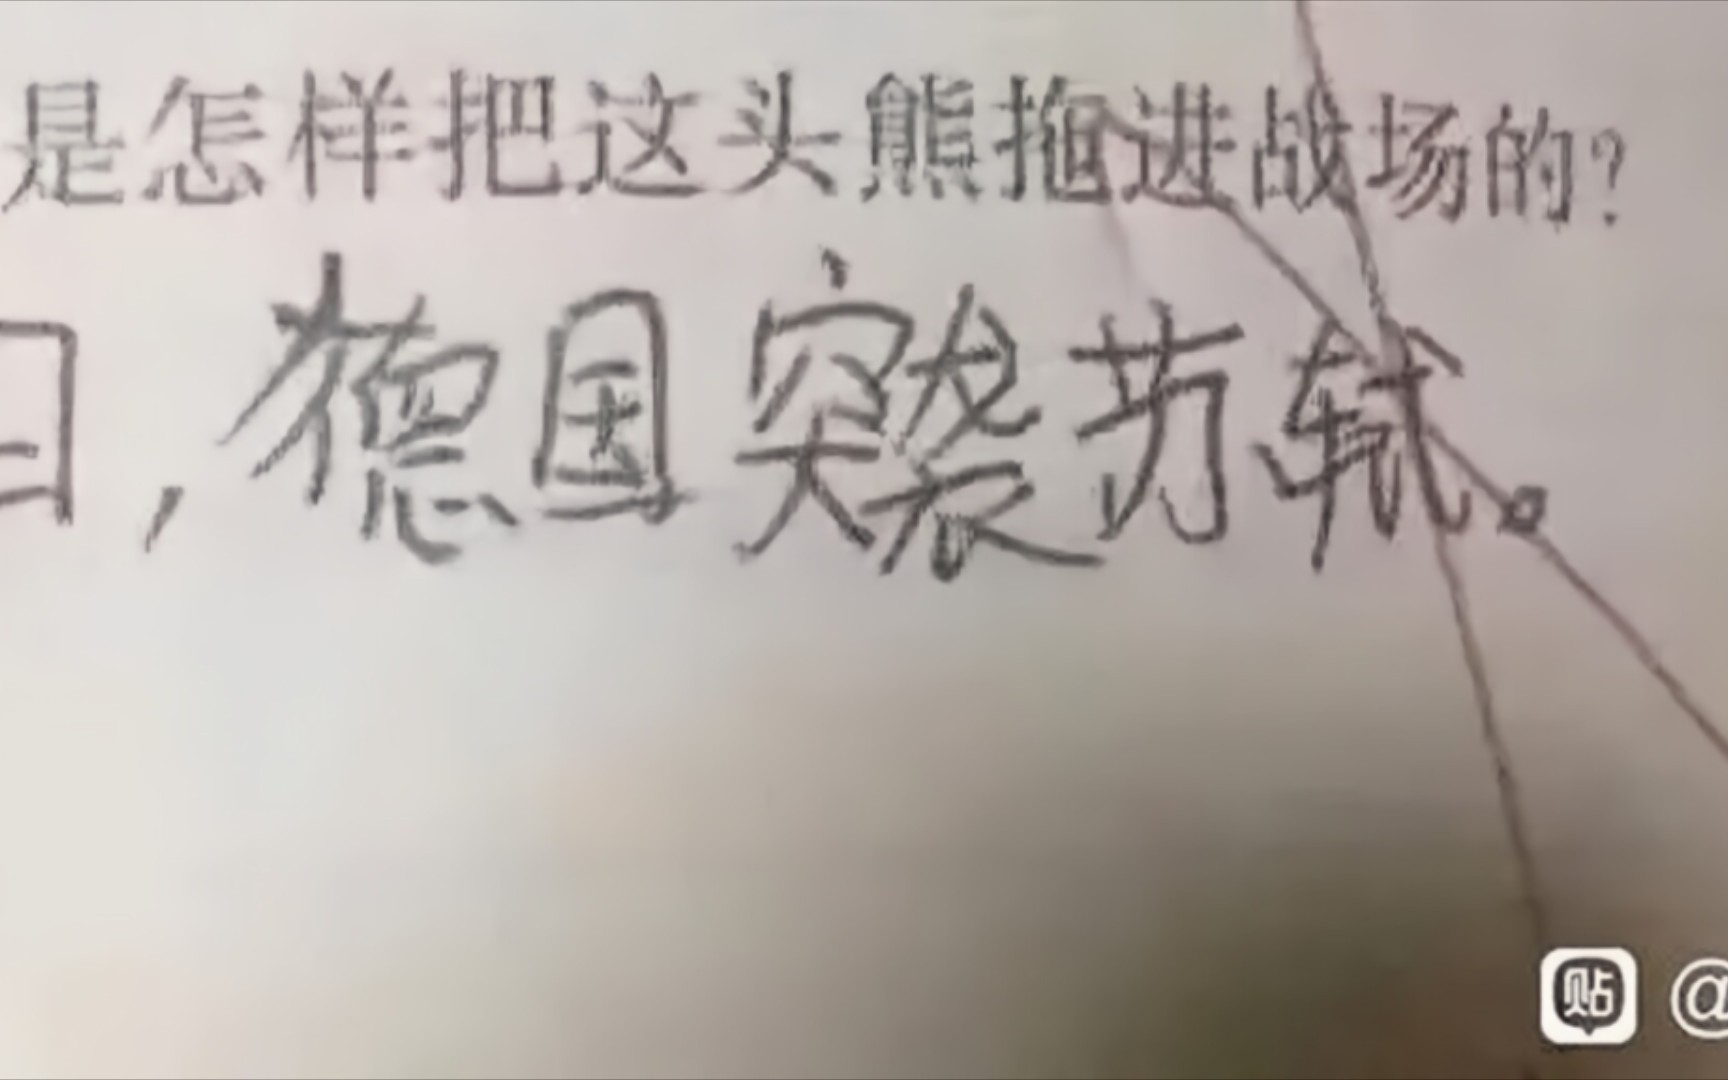 是怎样把这头熊拖进战场的?
日，德国突袭苏轼。
贴 @